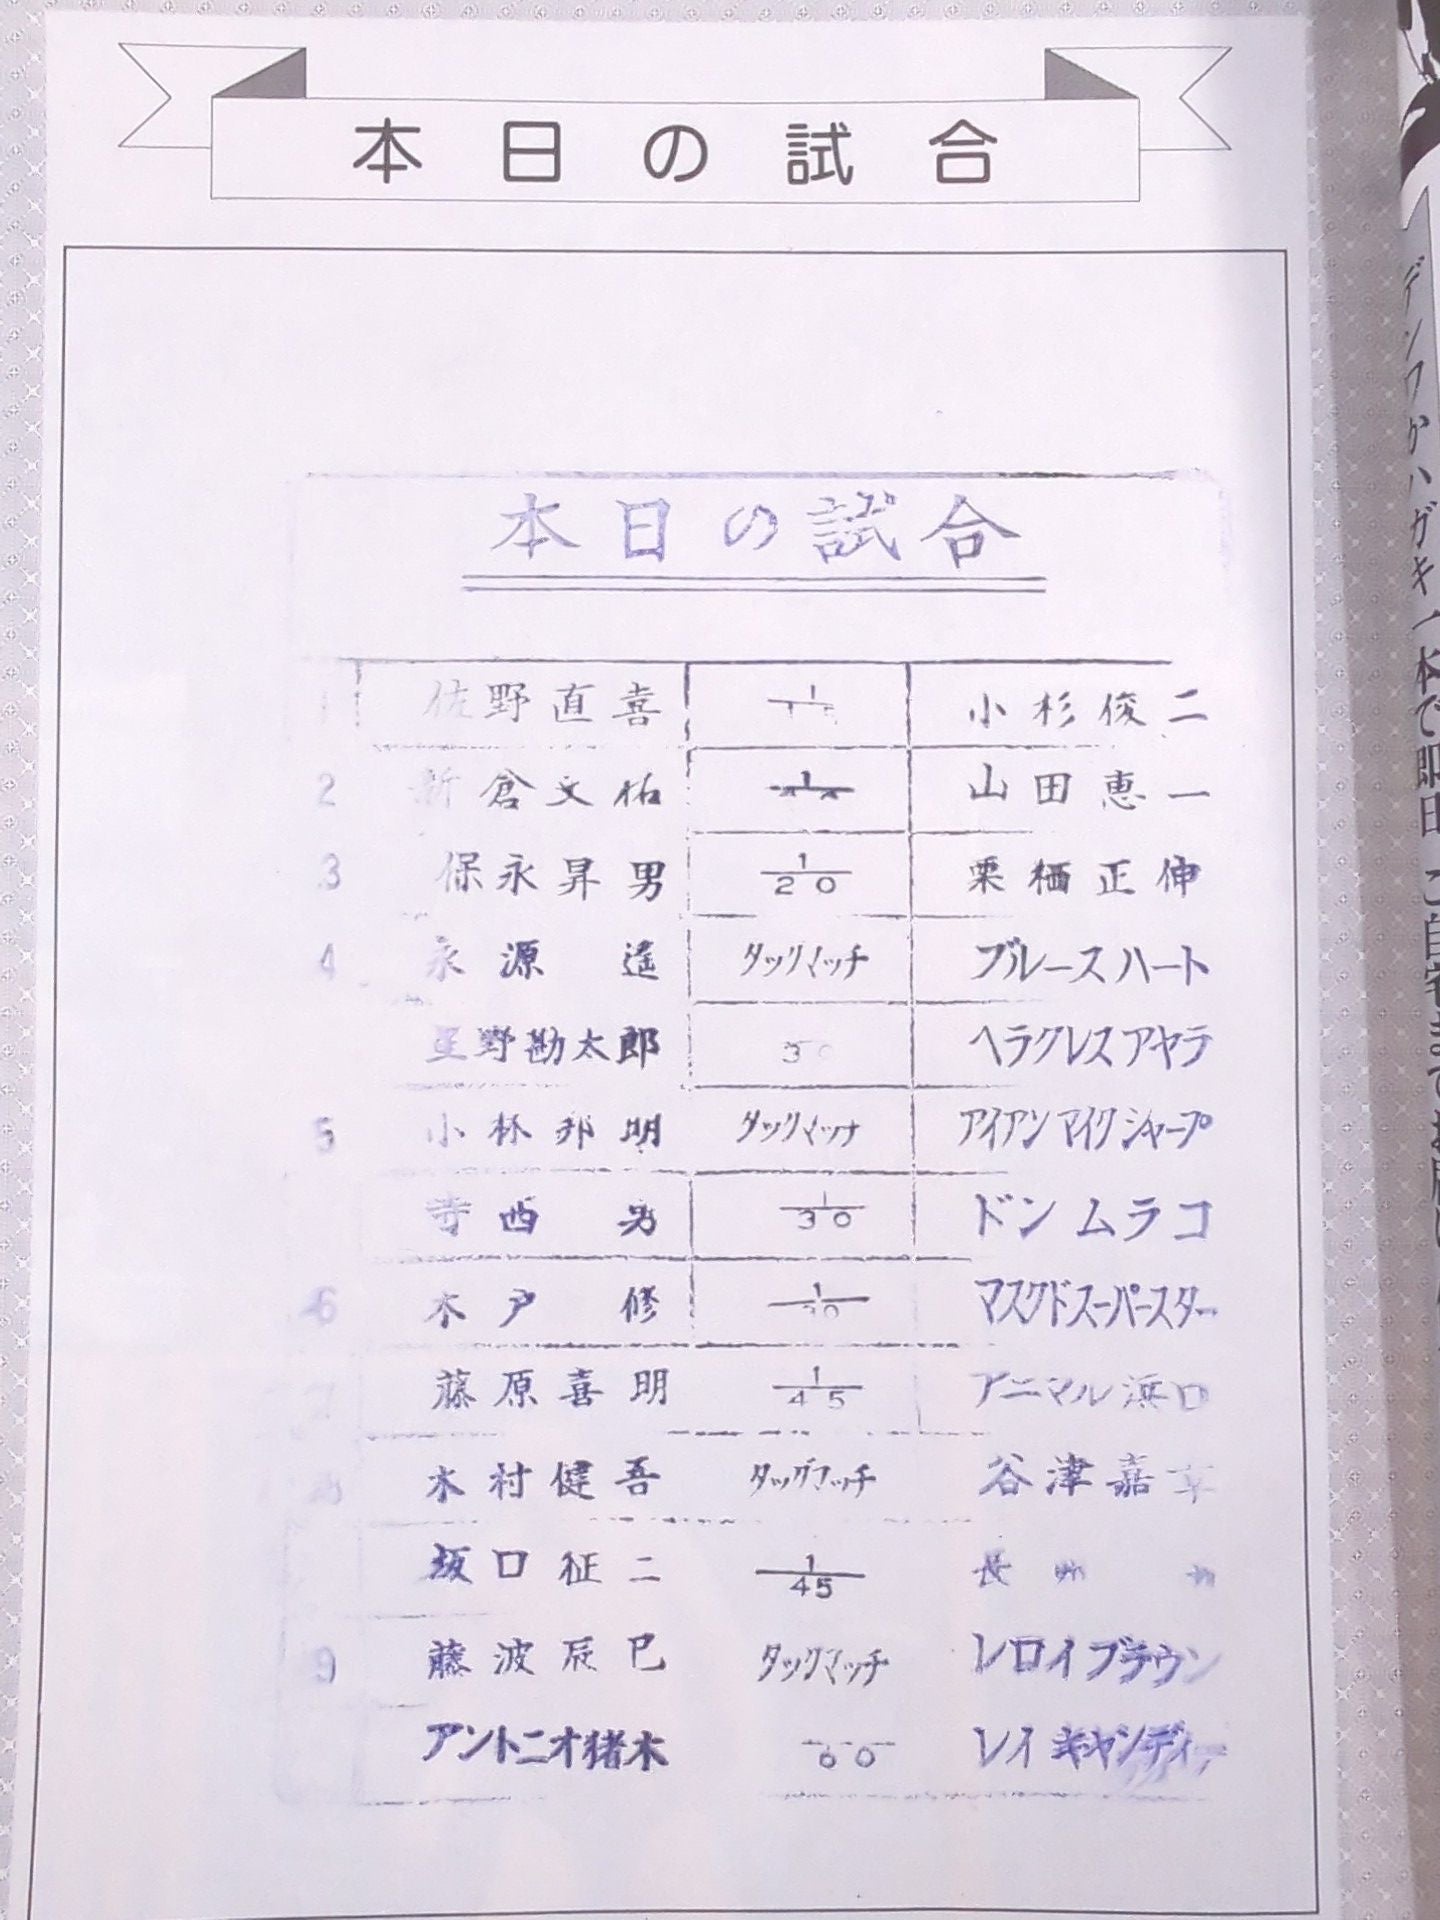 本日の試合
本日の試合
1 佐野直喜 1 小杉俊二
2 新倉文祐 1 山田恵一
3 保永昇男 1/20 栗栖正伸
4 永源遥 タッグマッチ ブルースハート
星野勘太郎 30 ヘラクレスアヤラ
5 小林邦明 タッグマッチ アイアンマイクシャープ
寺西勇 1/30 ドンムラコ
6 木戸修 1/30 マスクドスーパースター
7 藤原喜明 1/45 アニマル浜口
8 木村健吾 タッグマッチ 谷津嘉章
坂口征二 1/45 長州力
9 藤波辰巳 タッグマッチ レロイブラウン
アントニオ猪木 60 レイキャンディ